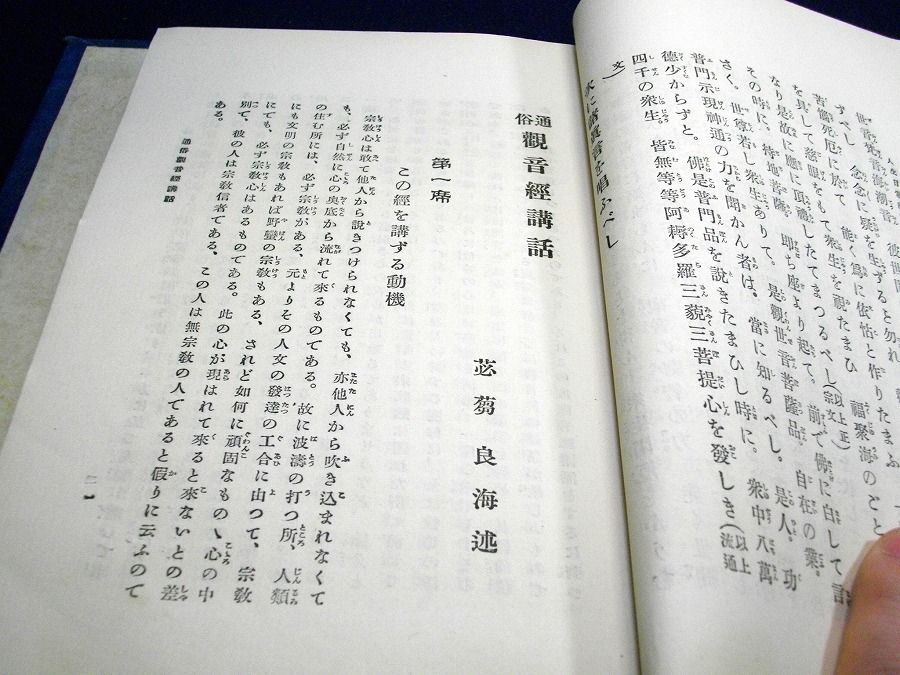 世音
ずべし 念念に疑を生ずること勿れ
苦惱死厄に於て 能く爲に依怙と作りたまふ 一
を具して慈眼をもて衆生を視たまひ 福聚海のごと
なり是故に應に頂禮したてまつるべし(以上正宗文)
その時に、持地菩薩、即ち座より起て。前で佛に白して言
さく。世尊若し衆生ありて。是觀世音菩薩品。自在の業。
普門示現神通の力を聞かん者は。當に知るべし。是人。功
德少からずと。佛是普門品を説きたまひし時に。衆中八萬
四千の衆生 皆無等等阿耨多羅三藐三菩提心を發しき(以上流通
文)
唱ふべし
通俗 觀音經講話
苾蒭良海述
第一席
この經を講ずる動機
宗教心は敢て他人から說きつけられなくても、亦他人から吹き込まれなくて
も、必ず自然に心の奥底から流れて來るものである。故に波濤の打つ所、人類
の住む所には、必ず宗教がある、元よりその人文の發達の工合に由つて、宗教
にも文明の宗教もあれば野蠻の宗教もある、されど如何に頑固なものゝ心の中
にても、必ず宗教心はあるものである。此の心が現はれて來ると來ないとの差
別で、彼の人は宗教信者である、この人は無宗教の人であると假りに云ふので
ある。
通俗觀音經講話
一